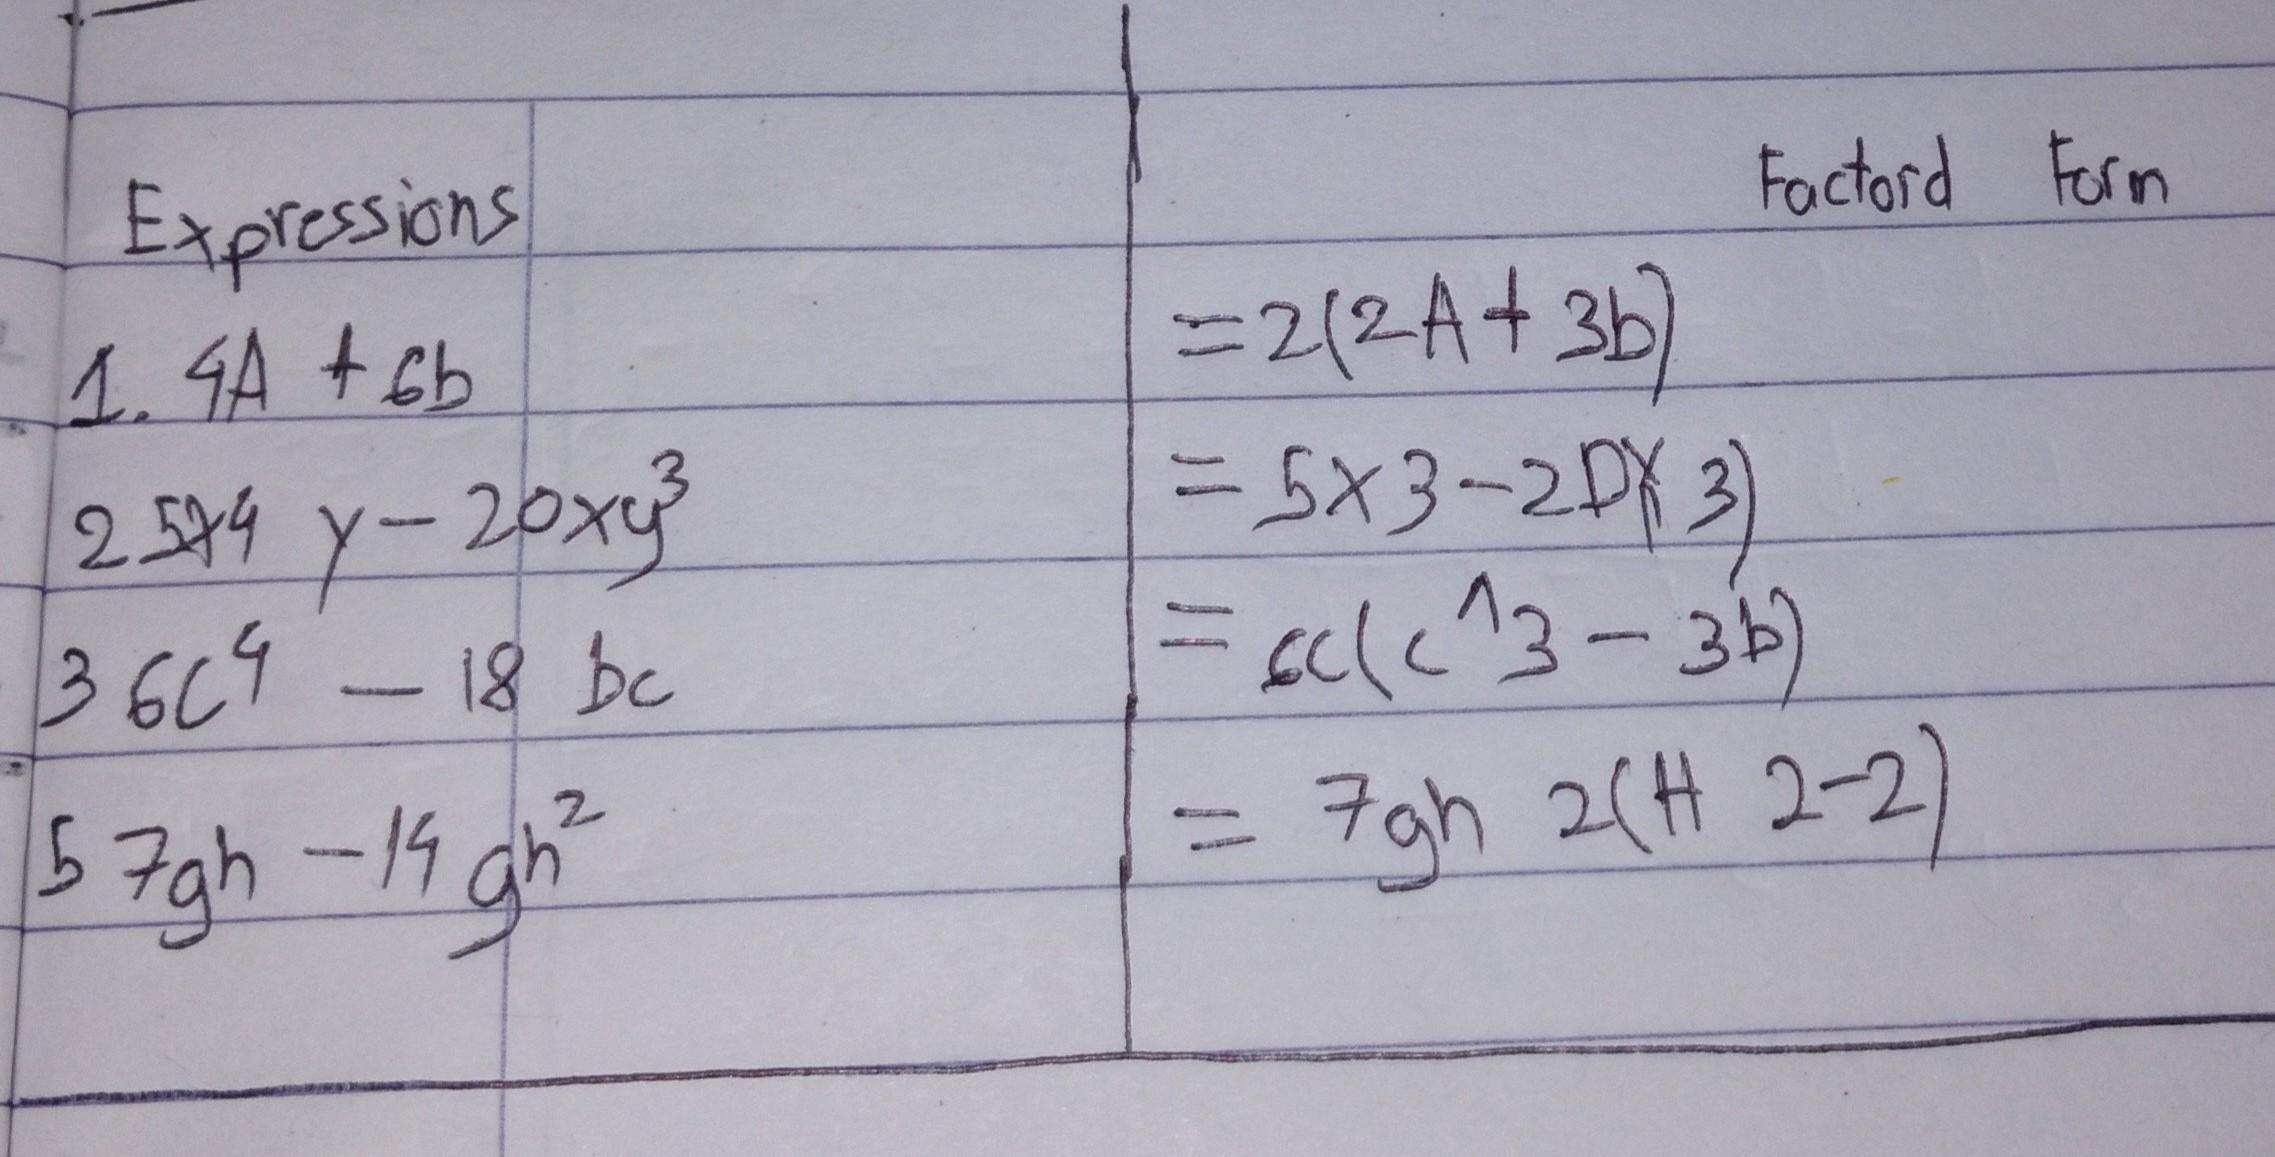 Expressions Factord Form
1. 4A + 6b =2(2A+ 3b)
2 5x4 y - 20xy³ = 5x3-2D 3)
3 6c⁴ - 18 bc = 6c(c^3 - 3b)
5 7gh - 14 gh² = 7gh 2(H 2-2)